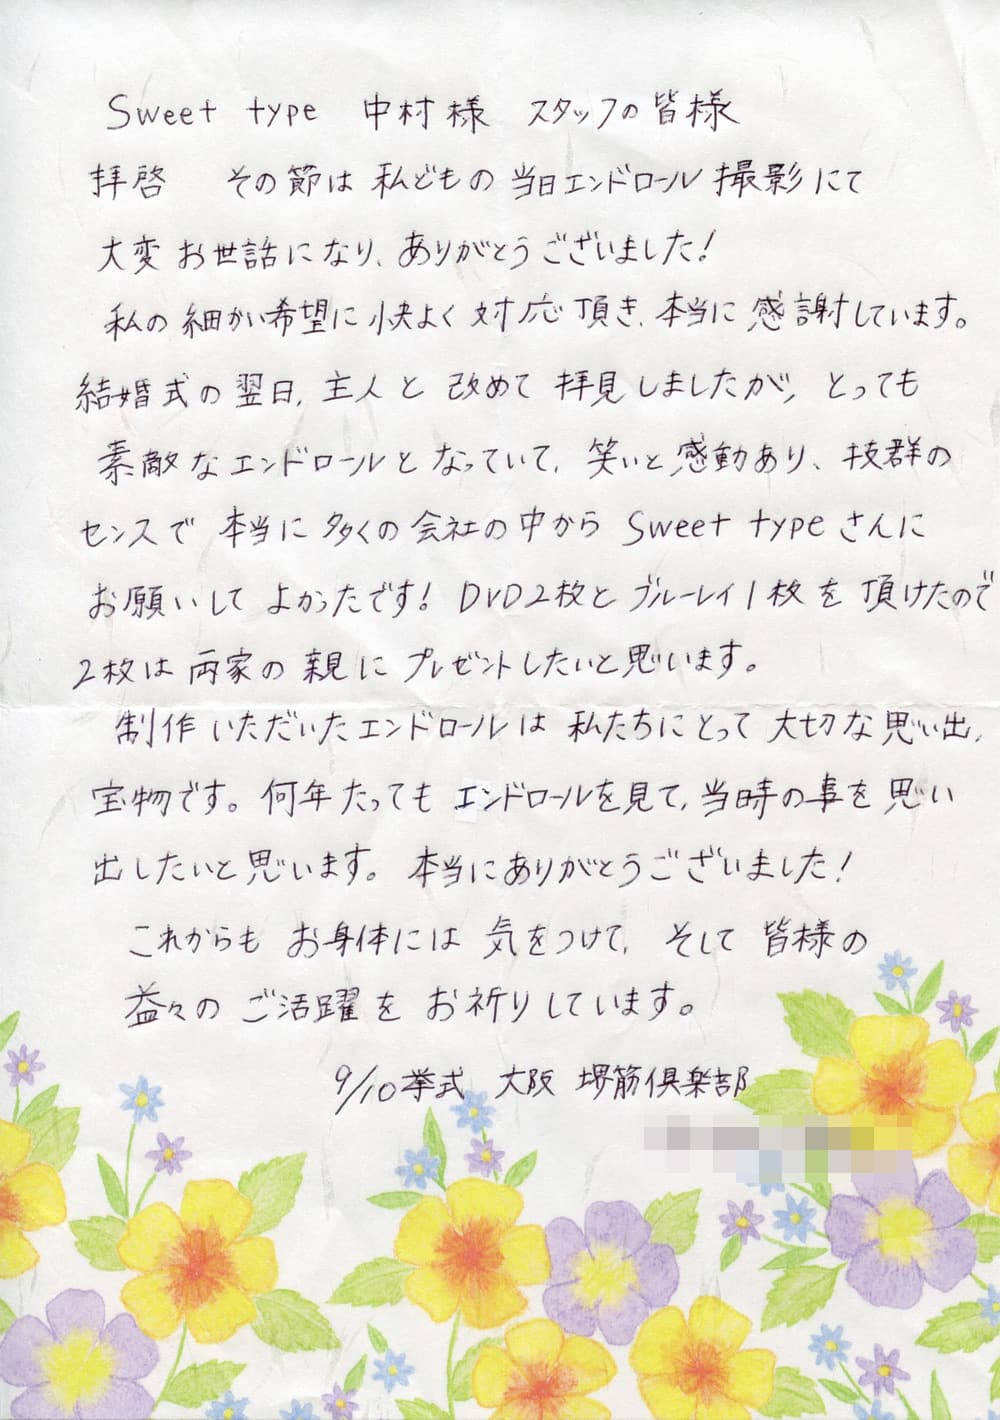 Sweet type 中村様 スタッフの皆様
拝啓 その節は私どもの当日エンドロール撮影にて
大変お世話になり、ありがとうございました!
私の細かい希望に快よく対応頂き、本当に感謝しています。
結婚式の翌日、主人と改めて拝見しましたが、とっても
素敵なエンドロールとなっていて、笑いと感動あり、抜群の
センスで本当に多くの会社の中からSweet typeさんに
お願いしてよかったです! DVD2枚とブルーレイ1枚を頂けたので
2枚は両家の親にプレゼントしたいと思います。
制作いただいたエンドロールは私たちにとって大切な思い出、
宝物です。何年たってもエンドロールを見て、当時の事を思い
出したいと思います。本当にありがとうございました!
これからもお身体には気をつけて、そして皆様の
益々のご活躍をお祈りしています。
9/10挙式 大阪 堺筋倶楽部